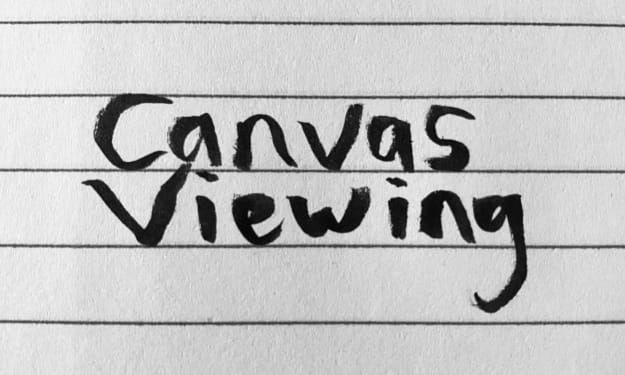 Canvas
Viewing